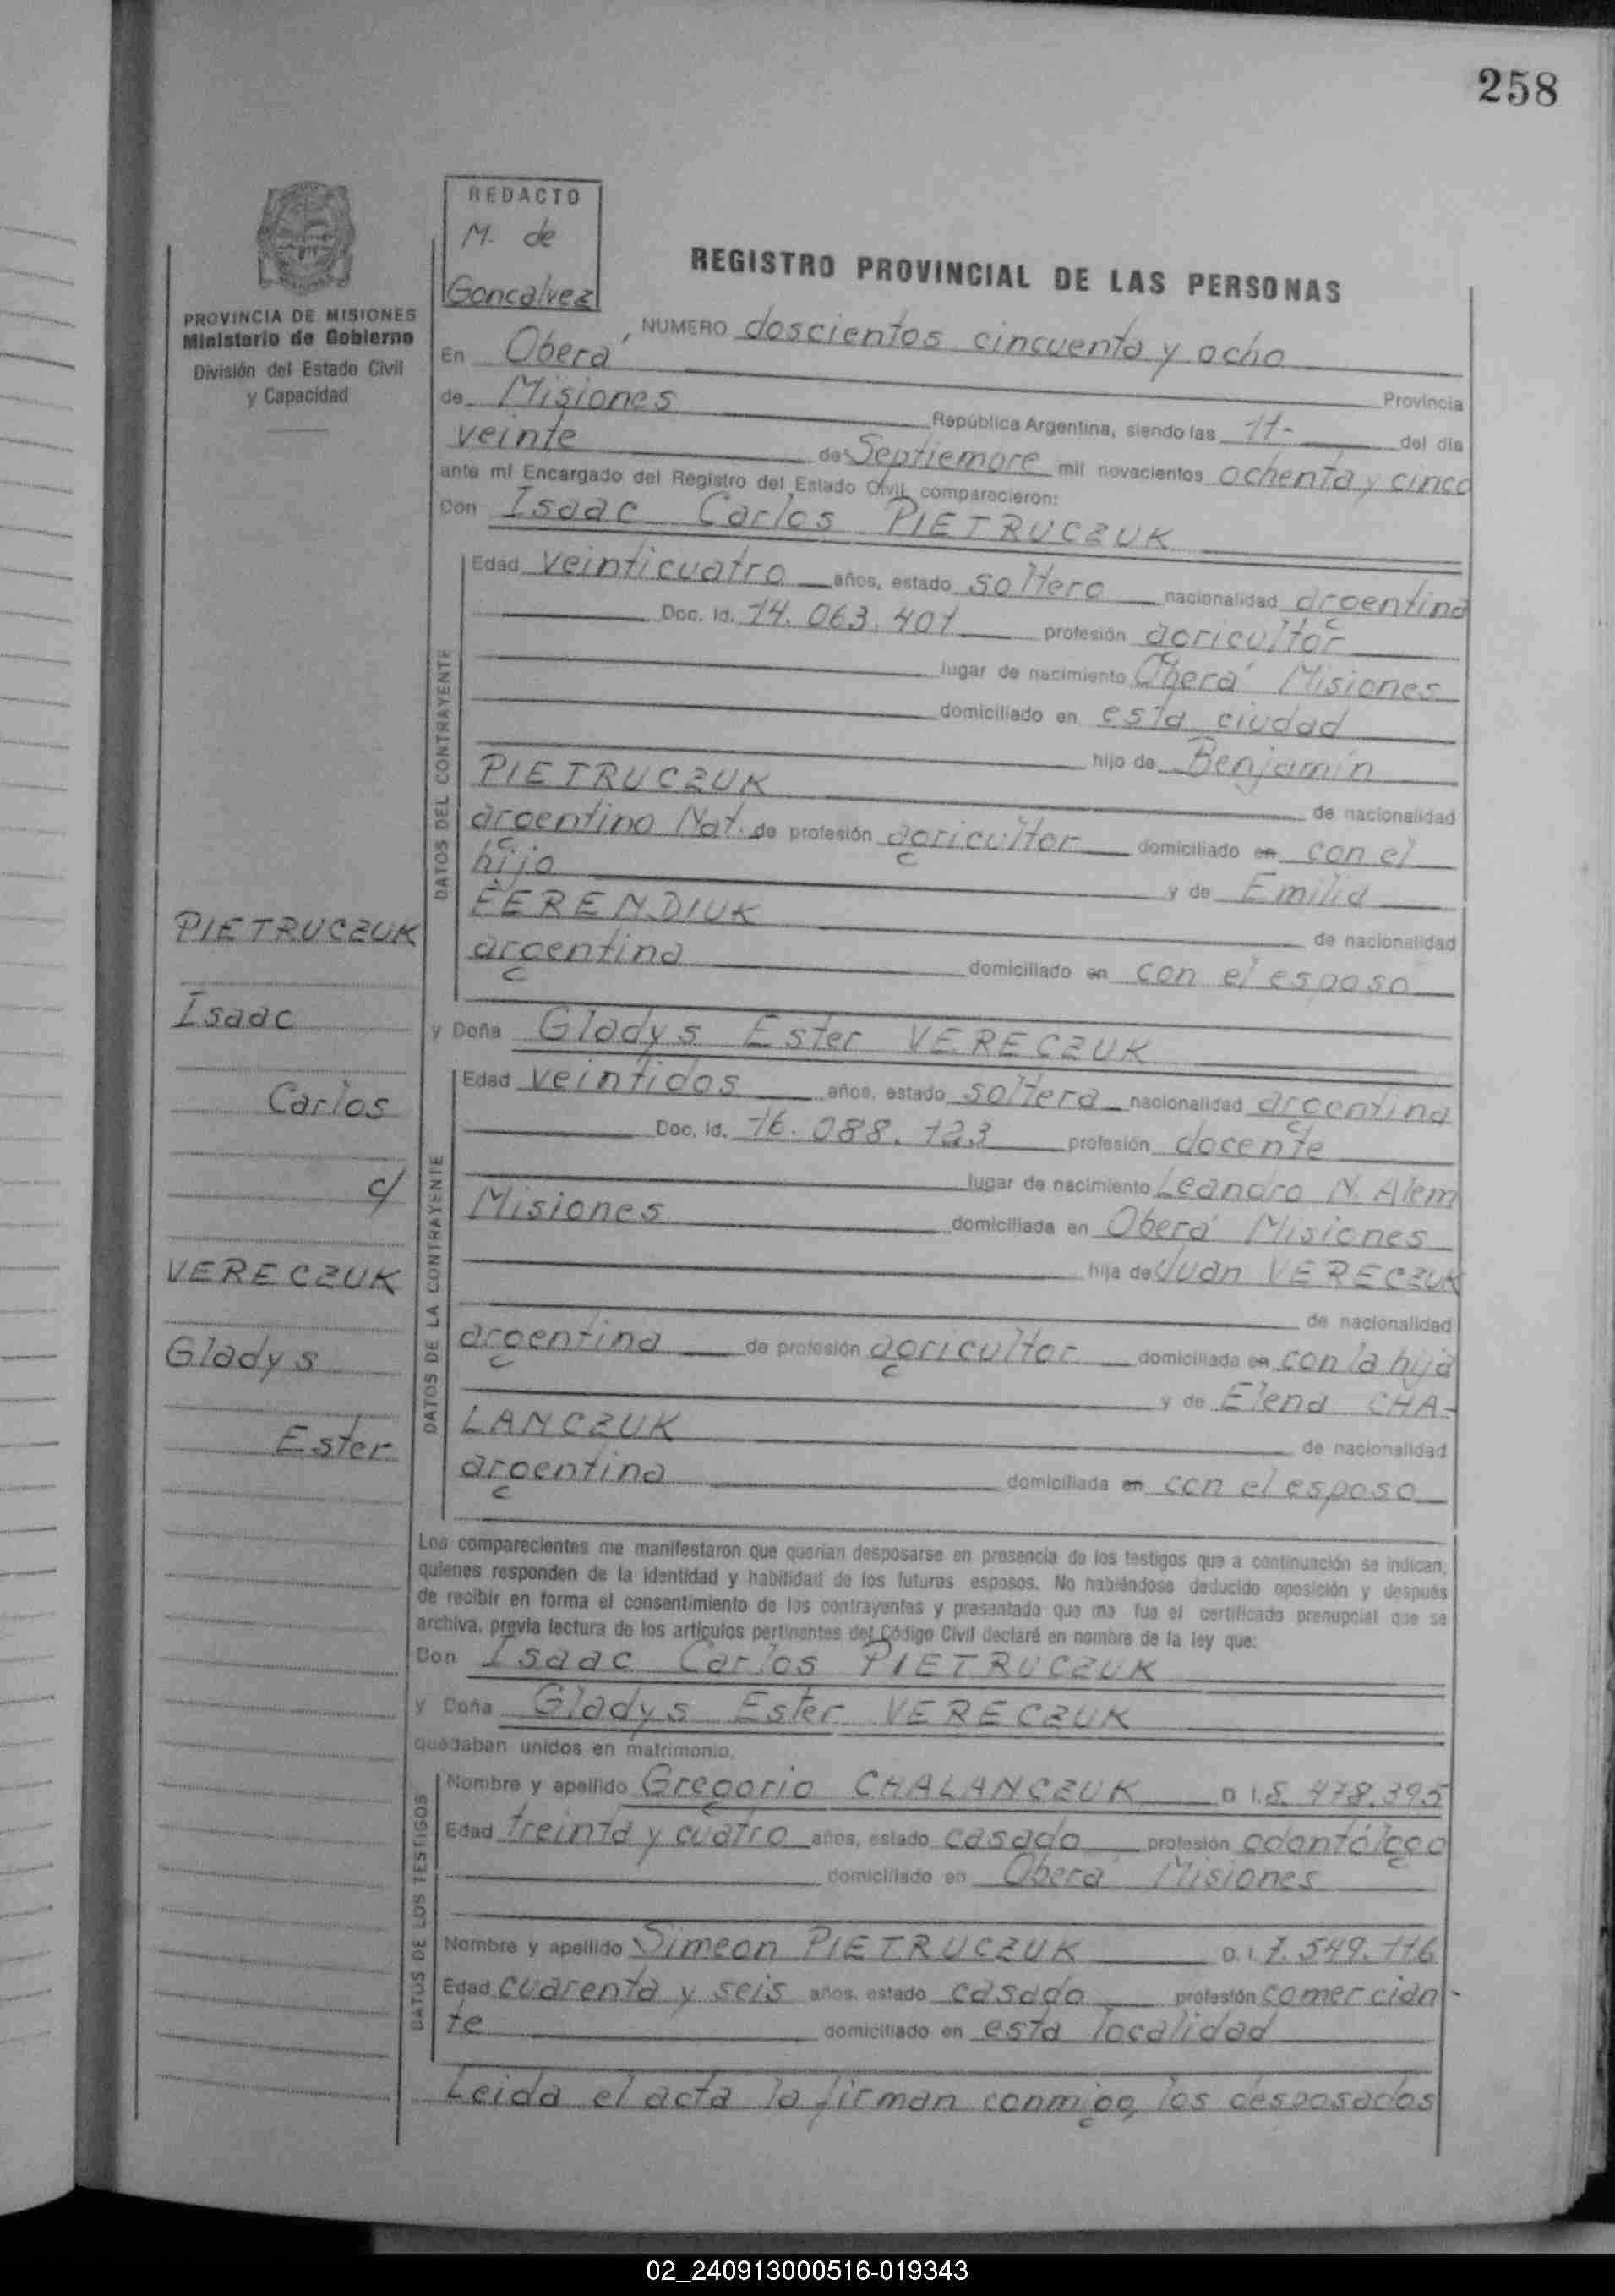 258
REDACTO
M. de
Goncalvez
PROVINCIA DE MISIONES
Ministerio de Gobierno
División del Estado Civil
y Capacidad
REGISTRO PROVINCIAL DE LAS PERSONAS
NUMERO doscientos cincuenta y ocho
En Oberá Provincia
de Misiones República Argentina, siendo las 11- del día
veinte de Septiembre mil novecientos ochenta y cinco
ante mí Encargado del Registro del Estado Civil, comparecieron:
Don Isaac Carlos PIETRUCZUK
DATOS DEL CONTRAYENTE
Edad veinticuatro años, estado soltero nacionalidad argentina
Doc. Id. 14.063.401 profesión agricultor
lugar de nacimiento Oberá Misiones
domiciliado en esta ciudad
hijo de Benjamin
PIETRUCZUK de nacionalidad
argentino Nat. de profesión agricultor domiciliado en con el
hijo y de Emilia
FERENDIUK de nacionalidad
argentina domiciliado en con el esposo
y Doña Gladys Ester VERECZUK
DATOS DE LA CONTRAYENTE
Edad veintidos años, estado soltera nacionalidad argentina
Doc. Id. 16.088.123 profesión docente
lugar de nacimiento Leandro N. Alem
Misiones domiciliada en Oberá Misiones
hija de Juan VERECZUK
de nacionalidad
argentina de profesión agricultor domiciliada en con la hija
y de Elena CHA-
LANCZUK de nacionalidad
argentina domiciliada en con el esposo
PIETRUCZUK
Isaac
Carlos
c/
VERECZUK
Gladys
Ester
Los comparecientes me manifestaron que querían desposarse en presencia de los testigos que a continuación se indican,
quienes responden de la identidad y habilidad de los futuros esposos. No habiéndose deducido oposición y después
de recibir en forma el consentimiento de los contrayentes y presentado que me fue el certificado prenupcial que se
archiva, previa lectura de los artículos pertinentes del Código Civil declaré en nombre de la ley que:
Don Isaac Carlos PIETRUCZUK
y Doña Gladys Ester VERECZUK
quedaban unidos en matrimonio.
DATOS DE LOS TESTIGOS
Nombre y apellido Gregorio CHALANCZUK D. I. 8.478.395
Edad treinta y cuatro años, estado casado profesión odontólogo
domiciliado en Oberá Misiones
Nombre y apellido Simeon PIETRUCZUK D. I. 7.549.116
Edad cuarenta y seis años, estado casado profesión comercian-
te domiciliado en esta localidad
Leida el acta la firman conmigo, los desposados
02_240913000516-019343